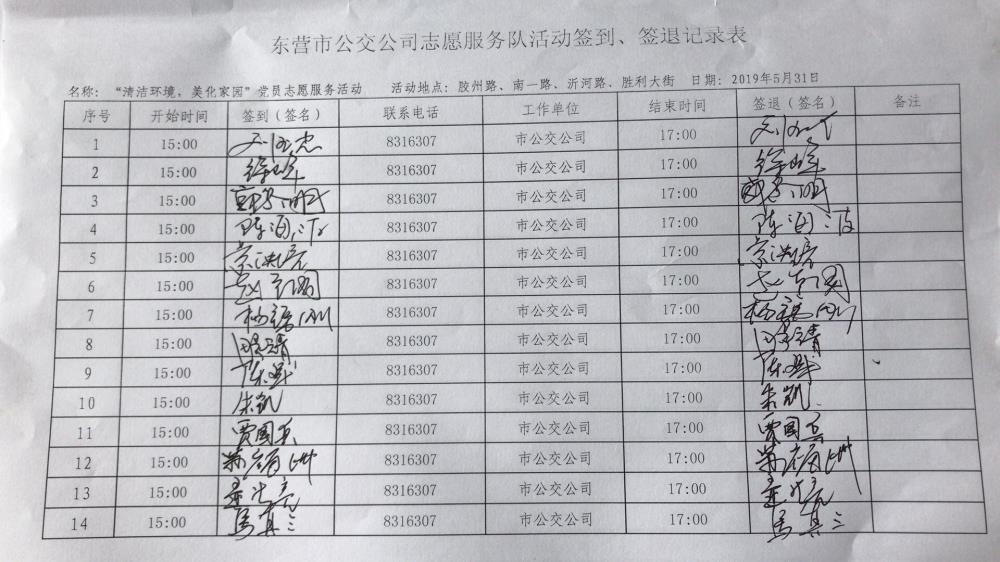 东营市公交公司志愿服务队活动签到、签退记录表
名称：“清洁环境，美化家园”党员志愿服务活动 活动地点：胶州路、南一路、沂河路、胜利大街 日期：2019年5月31日
序号 开始时间 签到（签名） 联系电话 工作单位 结束时间 签退（签名） 备注
1 15:00 8316307 市公交公司 17:00
2 15:00 徐峰 8316307 市公交公司 17:00 徐峰
3 15:00 8316307 市公交公司 17:00
4 15:00 陈海波 8316307 市公交公司 17:00 陈海波
5 15:00 8316307 市公交公司 17:00
6 15:00 8316307 市公交公司 17:00
7 15:00 8316307 市公交公司 17:00
8 15:00 8316307 市公交公司 17:00
9 15:00 8316307 市公交公司 17:00
10 15:00 朱凯 8316307 市公交公司 17:00 朱凯
11 15:00 贾国兵 8316307 市公交公司 17:00 贾国兵
12 15:00 8316307 市公交公司 17:00
13 15:00 8316307 市公交公司 17:00
14 15:00 马真三 8316307 市公交公司 17:00 马真三